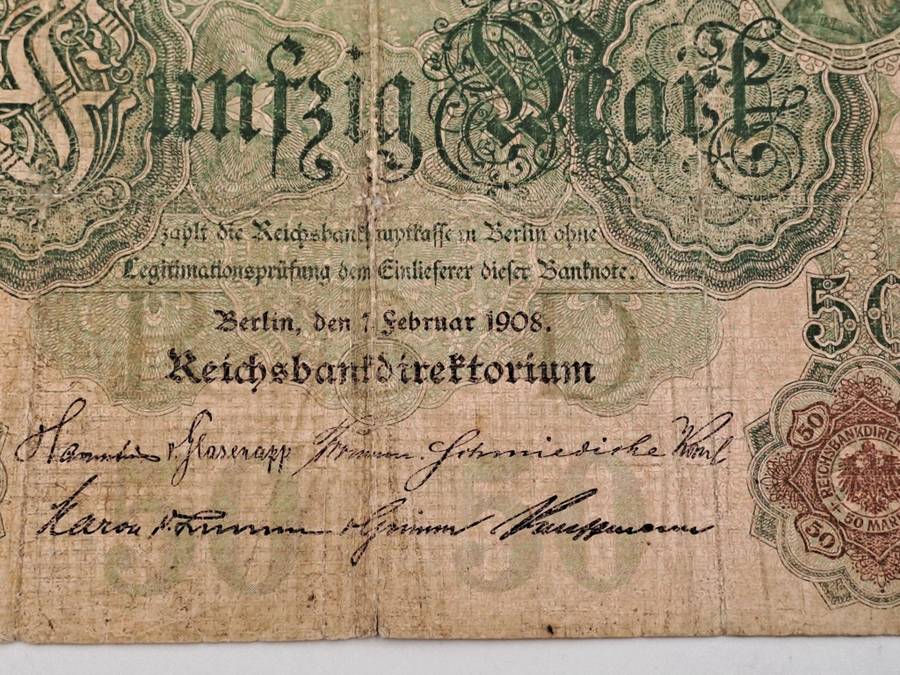 Fünfzig Mark
zahlt die Reichsbankhauptkasse in Berlin ohne
Legitimationsprüfung dem Einlieferer dieser Banknote.
50
Berlin, den 7. Februar 1908.
Reichsbankdirektorium
Havenstein v. Glasenapp Schmiedicke Korn
Maron v. Lumm v. Grimm Kauffmann
50 50
50
REICHSBANKDIRE
50 MAR
50